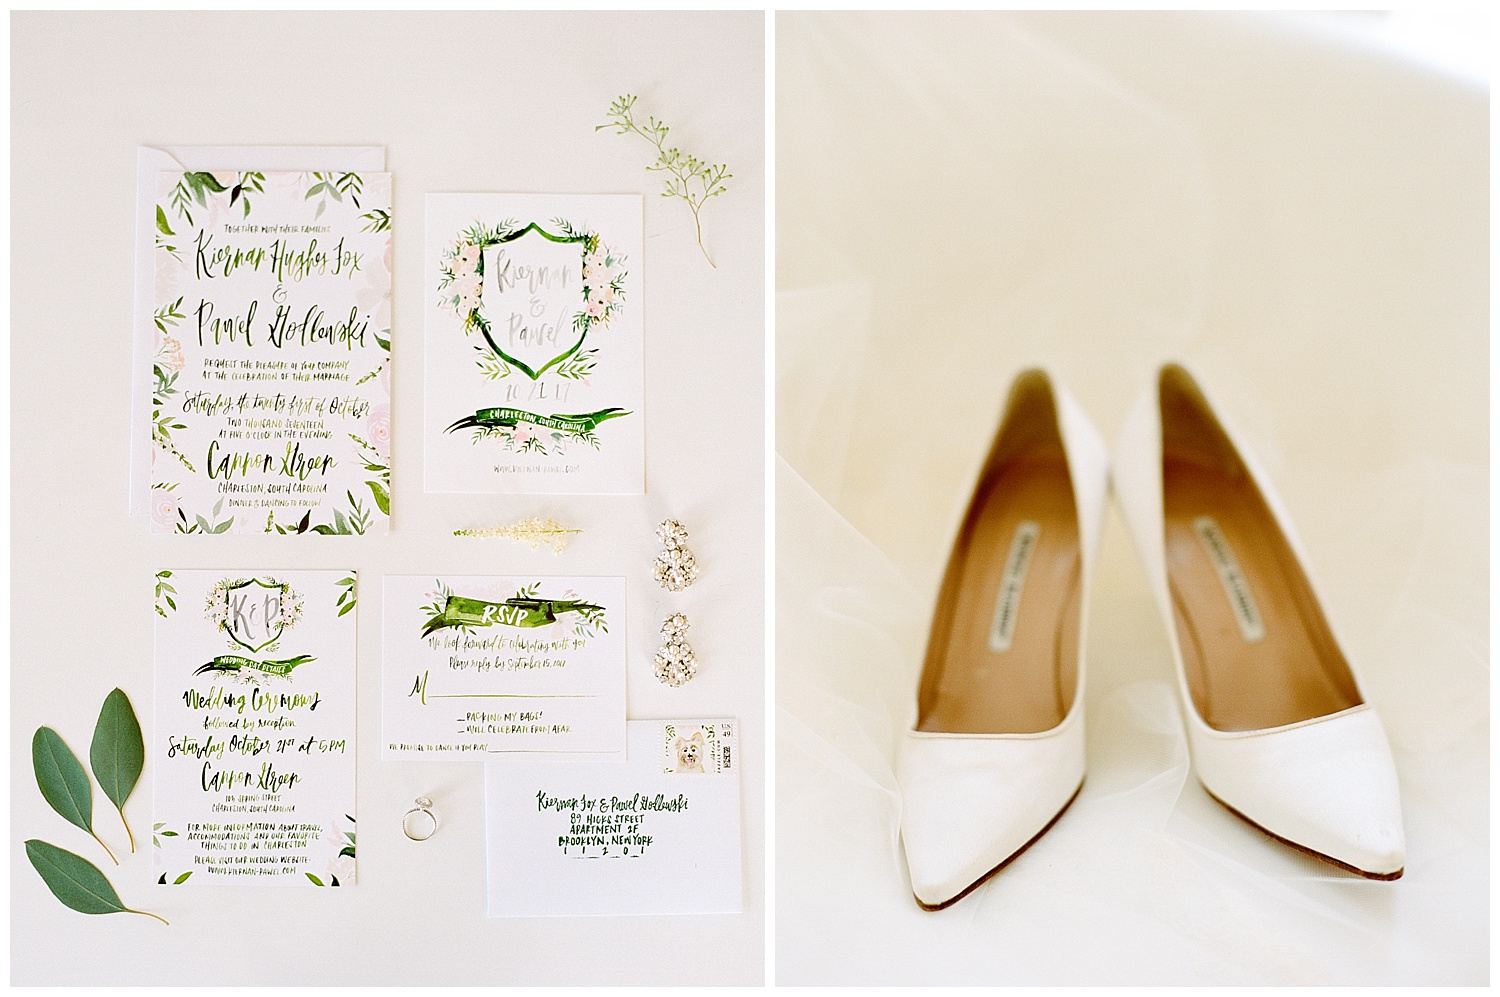 TOGETHER WITH THEIR FAMILIES
Kiernan Hughes Fox
&
Pawel Godlewski
REQUEST THE PLEASURE OF YOUR COMPANY
AT THE CELEBRATION OF THEIR MARRIAGE
Saturday, the twenty first of October
TWO THOUSAND SEVENTEEN
AT FIVE O'CLOCK IN THE EVENING
Cannon Green
CHARLESTON, SOUTH CAROLINA
DINNER & DANCING TO FOLLOW
Kiernan
&
Pawel
10.21.17
CHARLESTON, SOUTH CAROLINA
WWW.KIERNAN-PAWEL.COM
K&P
WEDDING DAY DETAILS
Wedding Ceremony
followed by reception
Saturday October 21st at 5PM
Cannon Green
103 SPRING STREET
CHARLESTON, SOUTH CAROLINA
FOR MORE INFORMATION ABOUT TRAVEL,
ACCOMMODATIONS AND OUR FAVORITE
THINGS TO DO IN CHARLESTON
PLEASE VISIT OUR WEDDING WEBSITE:
WWW.KIERNAN-PAWEL.COM
RSVP
We look forward to celebrating with you
Please reply by September 15, 2017
M
PACKING MY BAGS!
WILL CELEBRATE FROM AFAR
WE PROMISE TO DANCE IF YOU PLAY
US
49
Kiernan Fox & Pawel Godlewski
89 HICKS STREET
APARTMENT 2F
BROOKLYN, NEW YORK
1 1 2 0 1